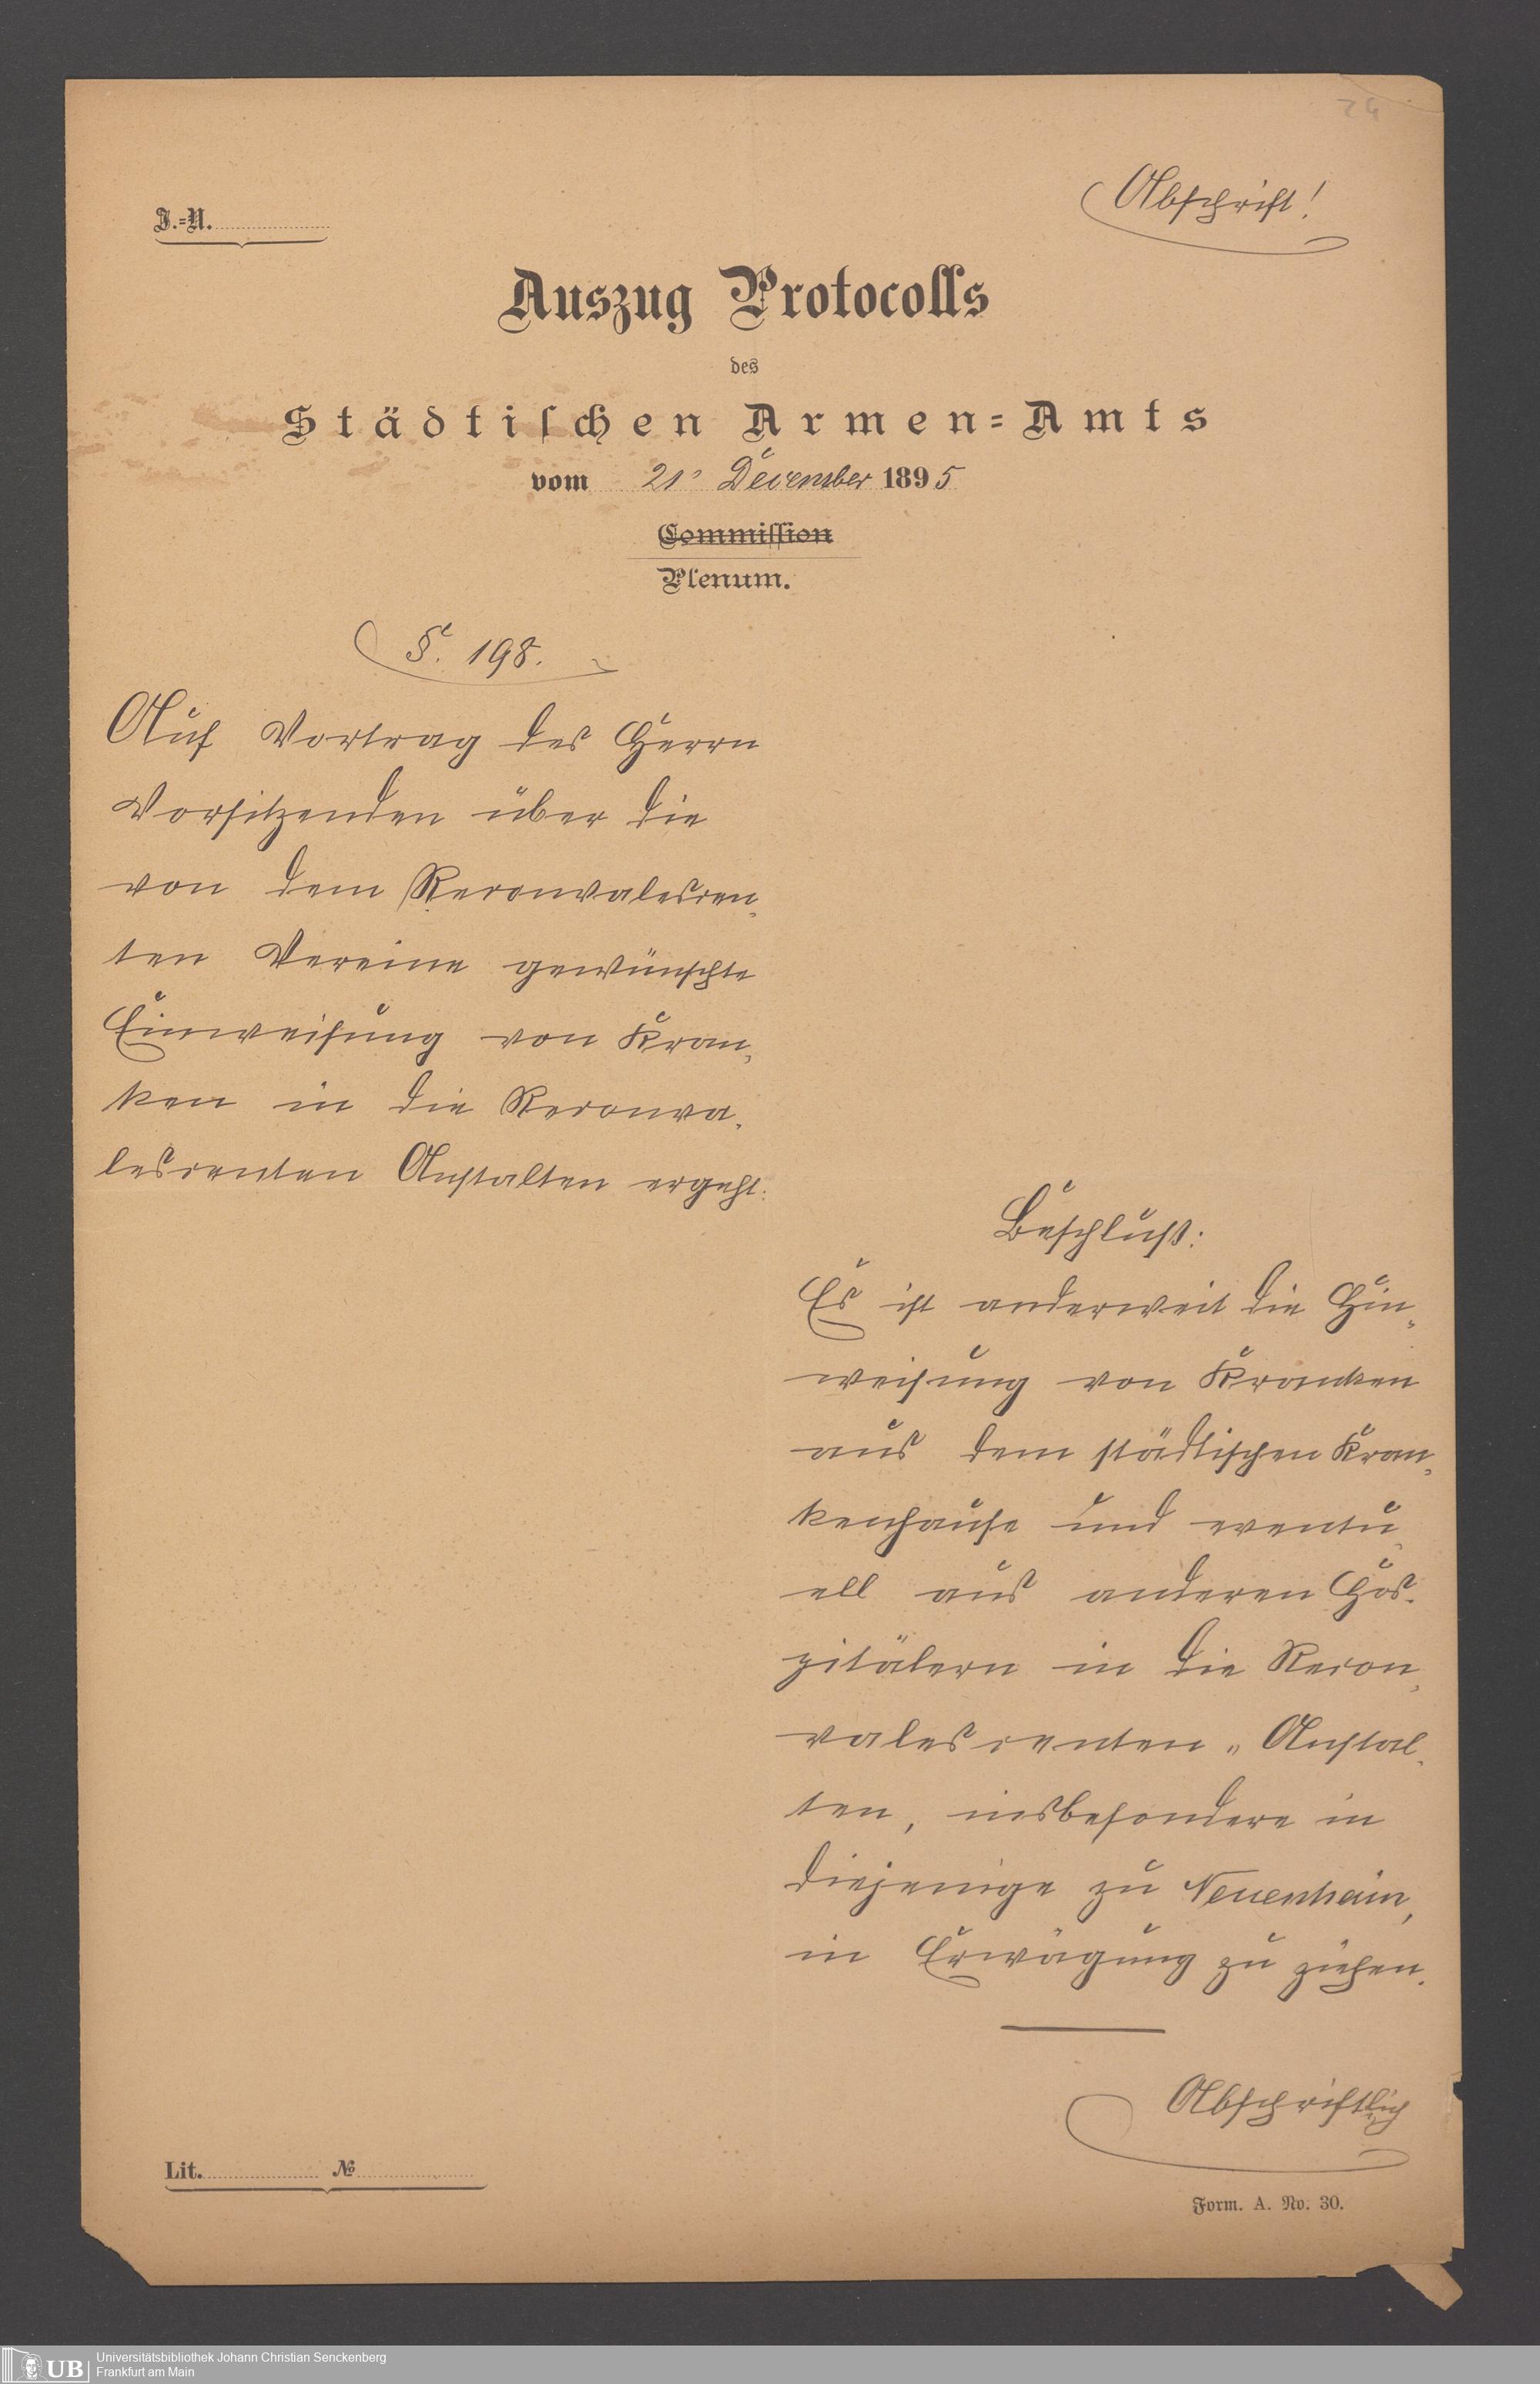 24
Abschrift!
J.=N.
Auszug Protocolls
des
Städtischen Armen=Amts
vom 21. December 1895
Commission
Plenum.
§. 198.
Auf Vortrag des Herrn
Vorsitzenden über die
von dem Reconvalescen„
ten Vereine gewünschte
Einweisung von Kran„
ken in die Reconva„
lescenten Anstalten ergeht:
Beschluß:
Es ist anderweit die Hin„
weisung von Kranken
aus dem städtischen Kran„
kenhause und eventu„
ell aus anderen Hos„
pitälern in die Recon„
valescenten „ Anstal„
ten, insbesondere in
diejenige zu Neuenhain,
in Erwägung zu ziehen.
Abschriftlich
Lit. №
Form. A. No. 30.
UB Universitätsbibliothek Johann Christian Senckenberg
Frankfurt am Main